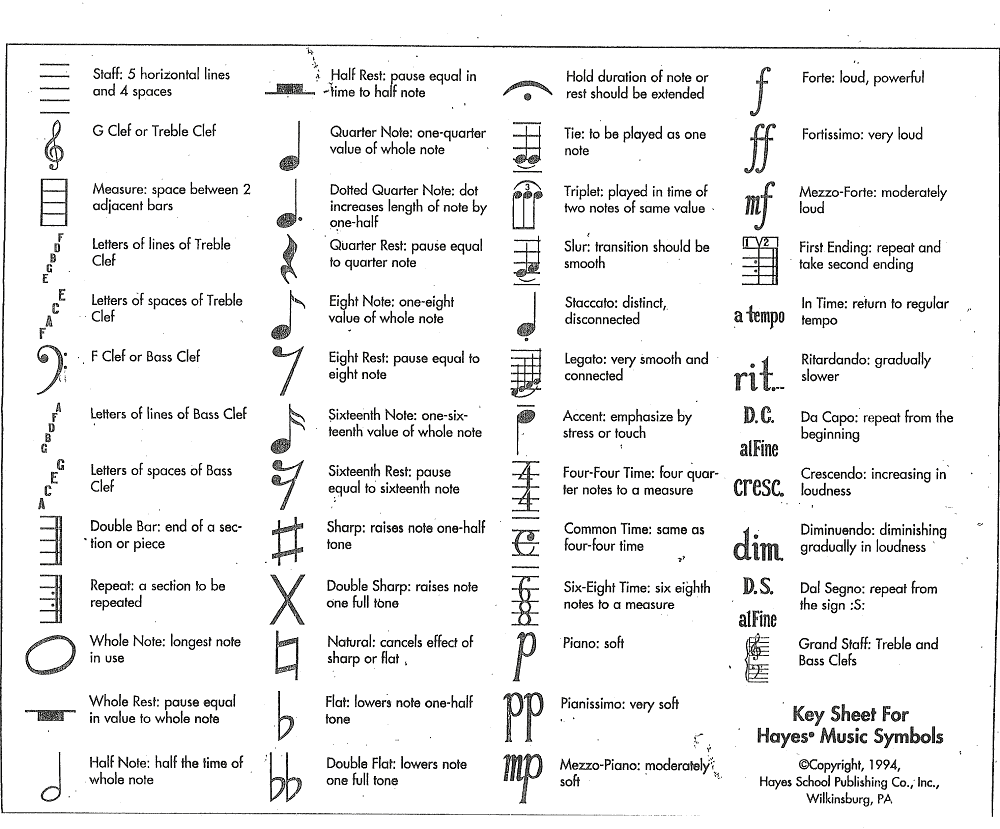 Staff: 5 horizontal lines
and 4 spaces
G Clef or Treble Clef
Measure: space between 2
adjacent bars
F
D
B
G
E
Letters of lines of Treble
Clef
E
C
A
F
Letters of spaces of Treble
Clef
F Clef or Bass Clef
A
F
D
B
G
Letters of lines of Bass Clef
G
E
C
A
Letters of spaces of Bass
Clef
Double Bar: end of a sec-
tion or piece
Repeat: a section to be
repeated
Whole Note: longest note
in use
Whole Rest: pause equal
in value to whole note
Half Note: half the time of
whole note
Half Rest: pause equal in
time to half note
Quarter Note: one-quarter
value of whole note
Dotted Quarter Note: dot
increases length of note by
one-half
Quarter Rest: pause equal
to quarter note
Eight Note: one-eight
value of whole note
Eight Rest: pause equal to
eight note
Sixteenth Note: one-six-
teenth value of whole note
Sixteenth Rest: pause
equal to sixteenth note
Sharp: raises note one-half
tone
Double Sharp: raises note
one full tone
Natural: cancels effect of
sharp or flat
Flat: lowers note one-half
tone
Double Flat: lowers note
one full tone
Hold duration of note or
rest should be extended
Tie: to be played as one
note
3
Triplet: played in time of
two notes of same value
Slur: transition should be
smooth
Staccato: distinct,
disconnected
Legato: very smooth and
connected
Accent: emphasize by
stress or touch
4
4
Four-Four Time: four quar-
ter notes to a measure
C
Common Time: same as
four-four time
6
8
Six-Eight Time: six eighth
notes to a measure
p
Piano: soft
pp
Pianissimo: very soft
mp
Mezzo-Piano: moderately
soft
f
Forte: loud, powerful
ff
Fortissimo: very loud
mf
Mezzo-Forte: moderately
loud
1 2
First Ending: repeat and
take second ending
a tempo
In Time: return to regular
tempo
rit...
Ritardando: gradually
slower
D.C.
al Fine
Da Capo: repeat from the
beginning
cresc.
Crescendo: increasing in
loudness
dim.
Diminuendo: diminishing
gradually in loudness
D.S.
al Fine
Dal Segno: repeat from
the sign :S:
Grand Staff: Treble and
Bass Clefs
Key Sheet For
Hayes® Music Symbols
©Copyright, 1994,
Hayes School Publishing Co., Inc.,
Wilkinsburg, PA